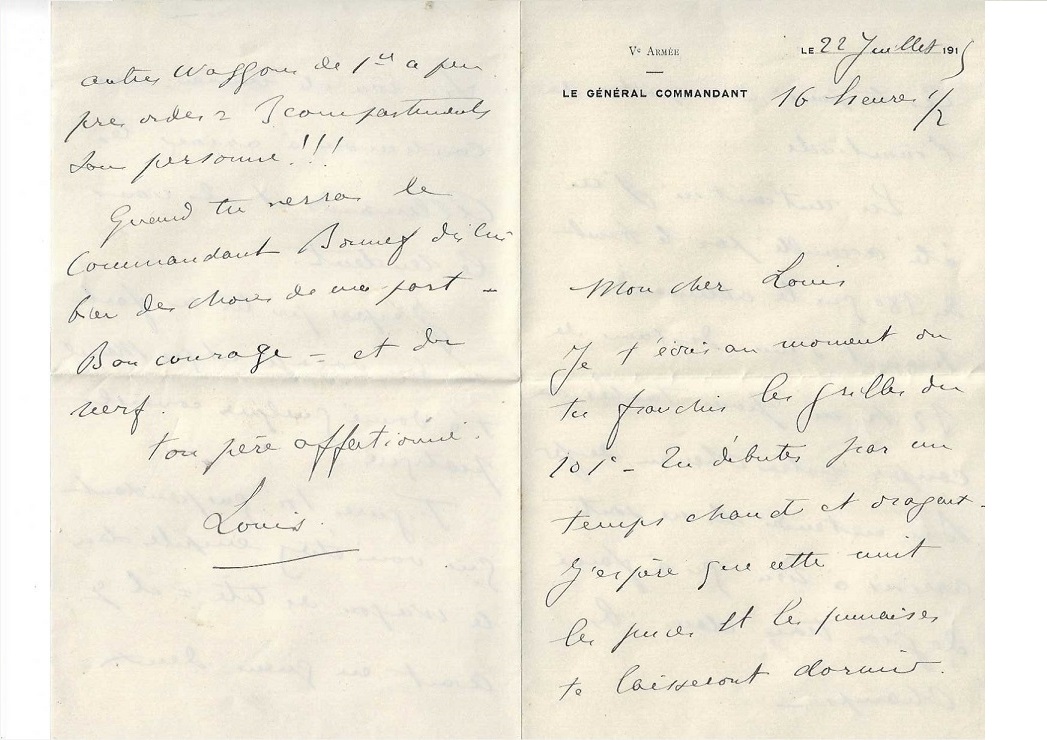 Ve ARMÉE
LE 22 Juillet 1915
LE GÉNÉRAL COMMANDANT
16 heures 1/2
Mon cher Louis
Je t'écris au moment où
tu franchis les grilles du
101e - Tu débutes par un
temps chaud et orageux -
J'espère que cette nuit
les puces et les punaises
te laisseront dormir.
autres waggons de 1ere a peu
pres vides = 3 compartiments
sans personne!!!
Quand tu verras le
Commandant dis lui
bien des choses de ma part -
Bon courage = et du
nerf.
ton père affectionné.
Louis